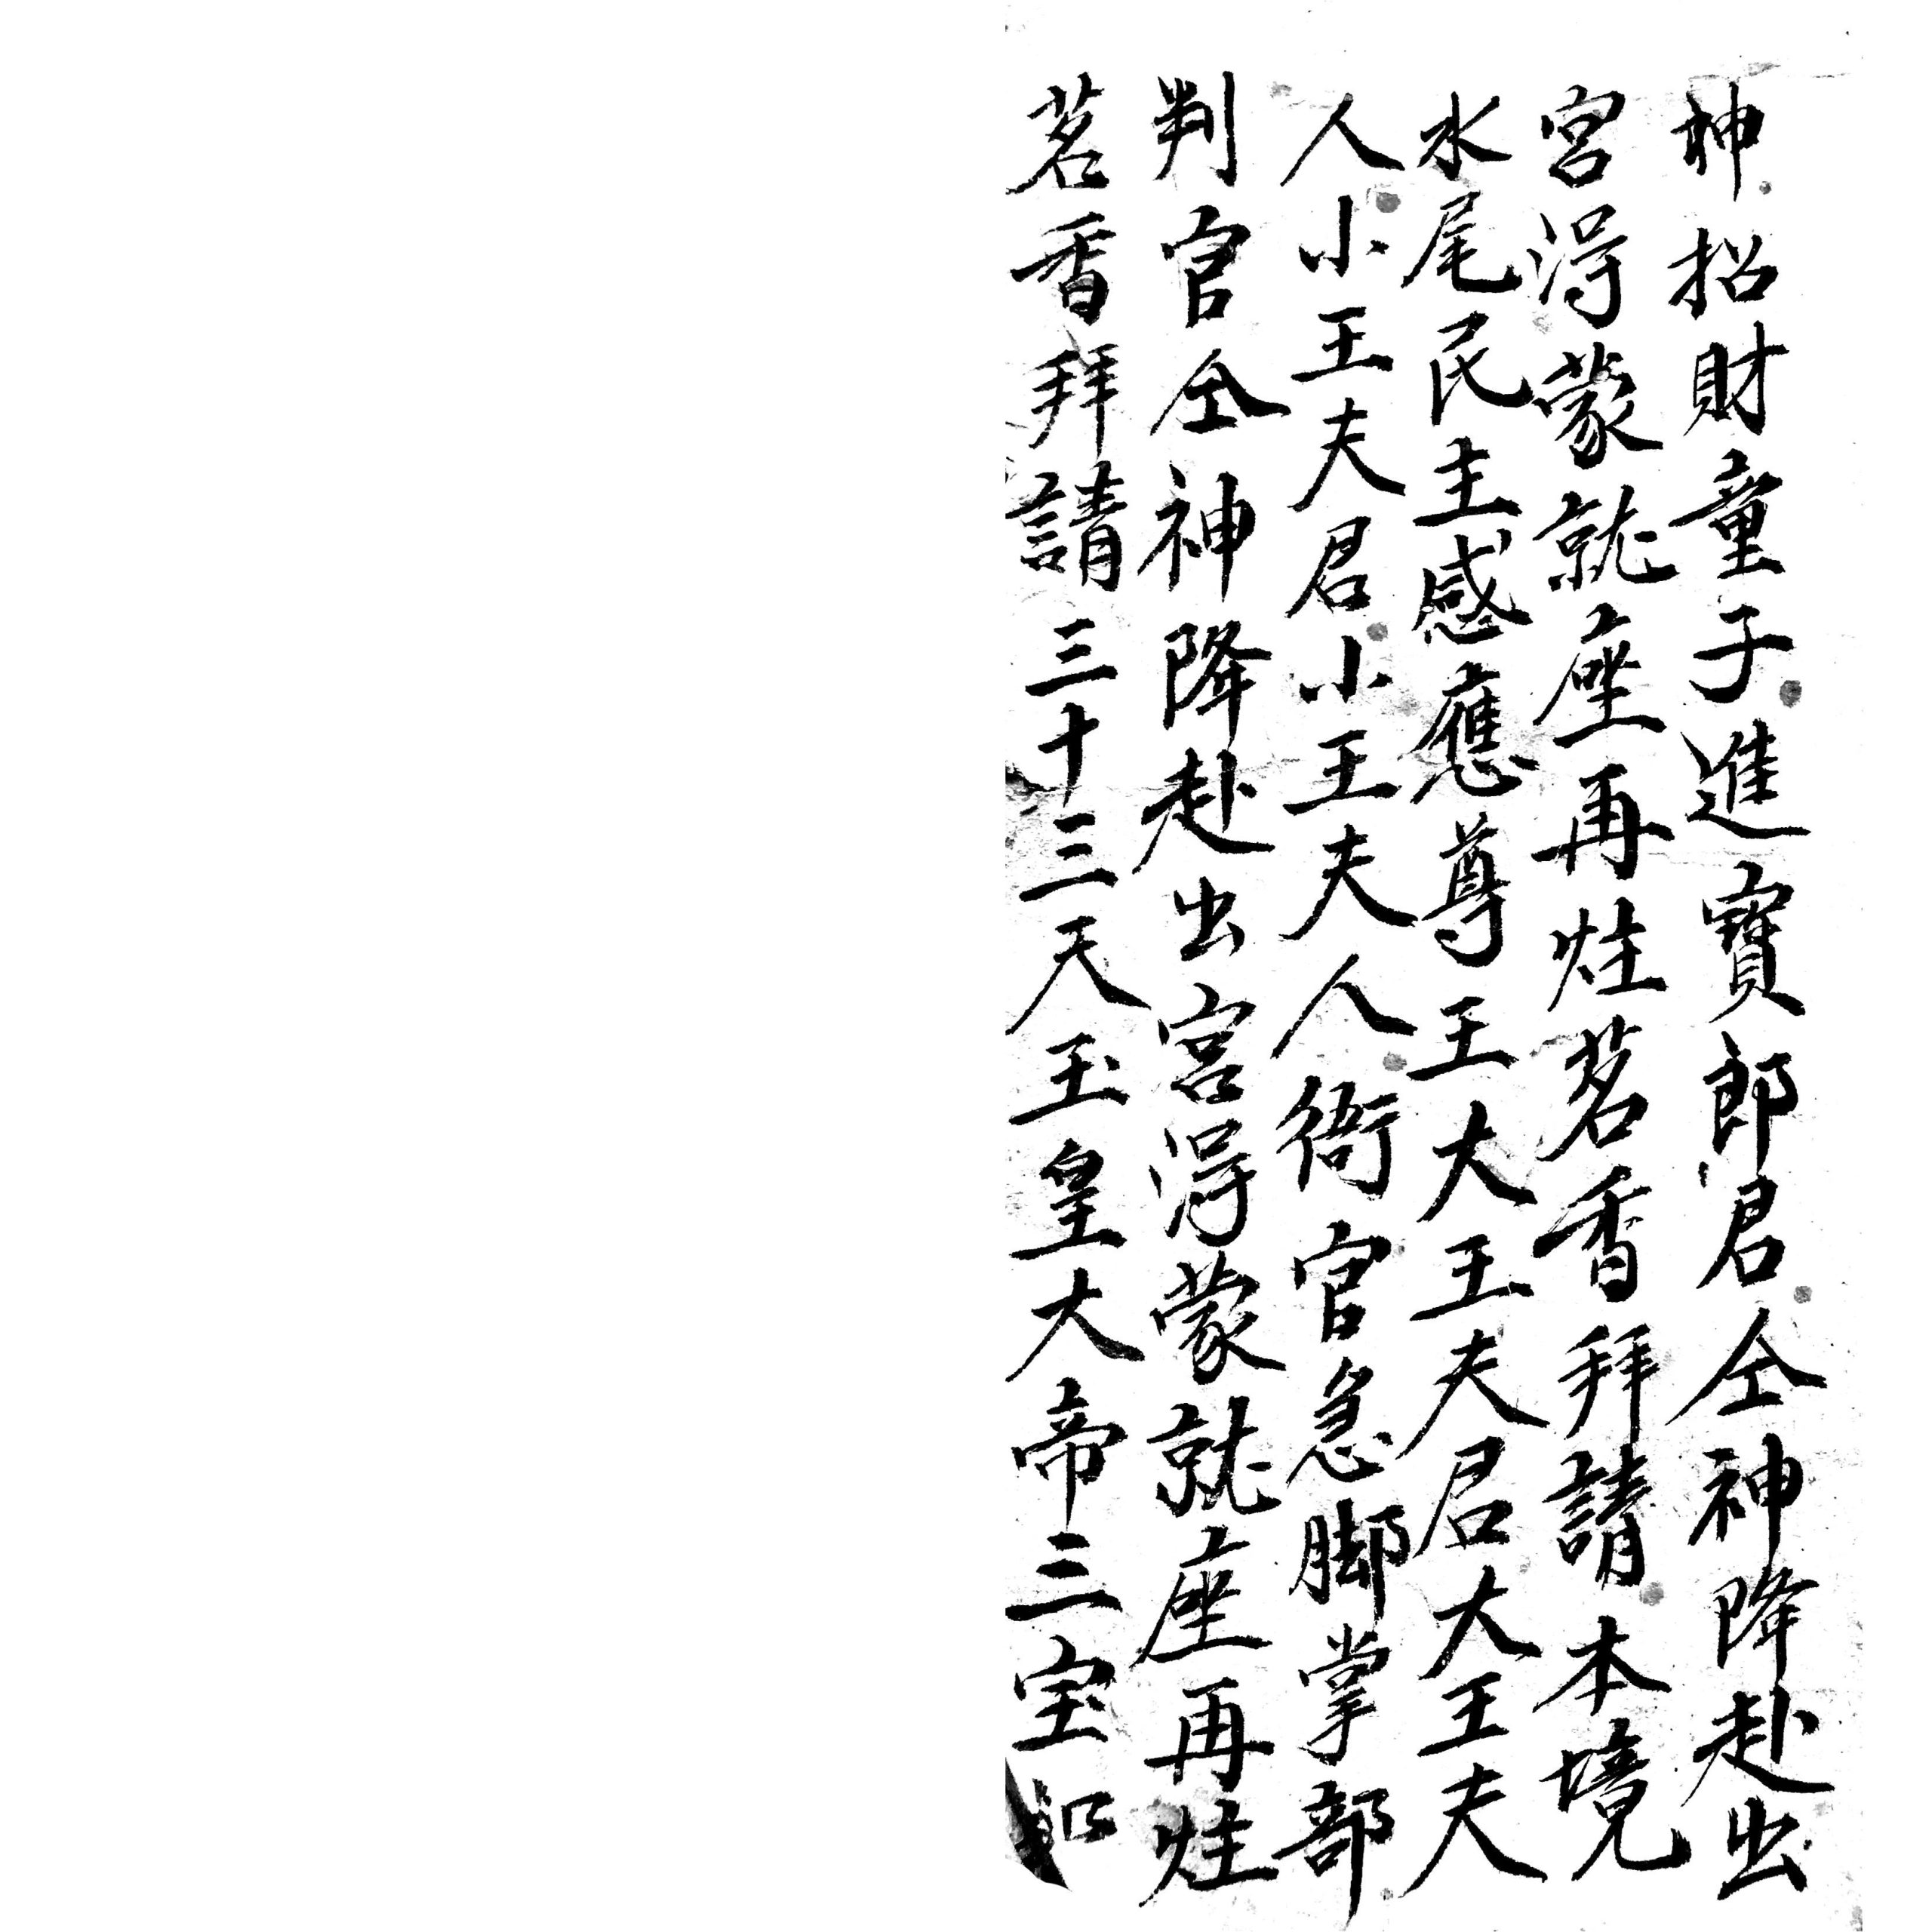 神招財童子進寳郎君仝神降赴出
宮淂蒙就座再炷茗香拜請本境
水尾民主感應尊王大王夫君大王夫
人小王夫君小王夫人衙官急脚掌部
判官仝神降赴出宮淂蒙就座再炷
茗香拜請三十三天玉皇大帝三宝